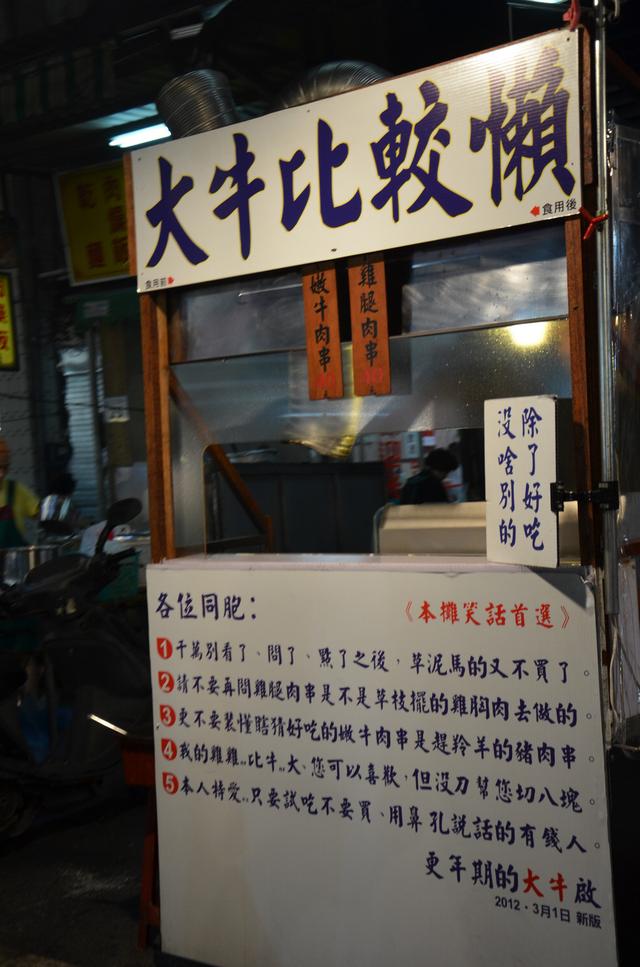 大牛比較懶
食用前
食用後
嫩牛肉串
雞腿肉串
除了好吃
沒啥別的
各位同胞：
《本攤笑話首選》
1 千萬別看了、問了、點了之後，草泥馬的又不買了。
2 請不要再問雞腿肉串是不是草枝擺的雞胸肉去做的。
3 更不要裝懂瞎猜好吃的嫩牛肉串是趕羚羊的豬肉串。
4 我的雞雞..比牛..大、您可以喜歡，但沒刀幫您切八塊。
5 本人特愛..只要試吃不要買、用鼻孔説話的有錢人。
更年期的大牛啟
2012・3月1日 新版